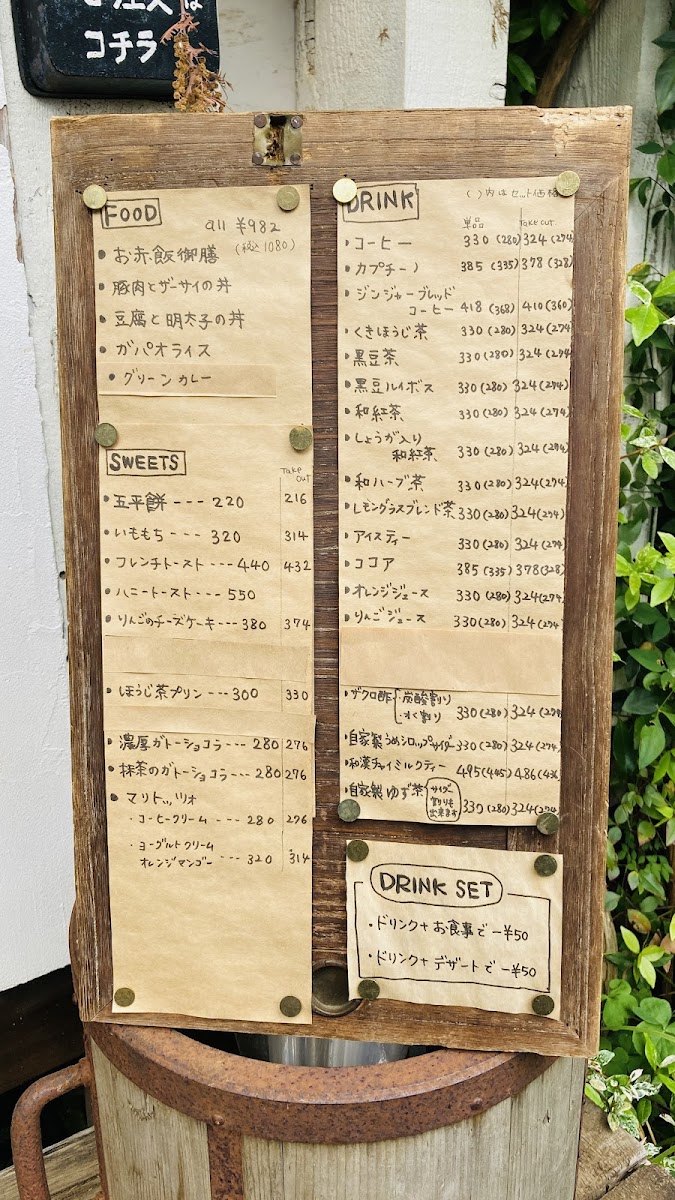 ご注文は
コチラ
FOOD
all ¥982
(税込1080)
・お赤飯御膳
・豚肉とザーサイの丼
・豆腐と明太子の丼
・ガパオライス
・グリーンカレー
SWEETS
Take out
・五平餅 --- 220 216
・いももち --- 320 314
・フレンチトースト --- 440 432
・ハニートースト --- 550
・りんごのチーズケーキ --- 380 374
・ほうじ茶プリン --- 300 330
・濃厚ガトーショコラ --- 280 276
・抹茶のガトーショコラ --- 280 276
・マリトッツォ
・コーヒークリーム --- 280 276
・ヨーグルトクリーム
オレンジマンゴー --- 320 314
DRINK
( )内はセット価格
単品 Take out
・コーヒー 330 (280) 324 (274)
・カプチーノ 385 (335) 378 (328)
・ジンジャーブレッド
コーヒー 418 (368) 410 (360)
・くきほうじ茶 330 (280) 324 (274)
・黒豆茶 330 (280) 324 (274)
・黒豆ルイボス 330 (280) 324 (274)
・和紅茶 330 (280) 324 (274)
・しょうが入り
和紅茶 330 (280) 324 (274)
・和ハーブ茶 330 (280) 324 (274)
・レモングラスブレンド茶 330 (280) 324 (274)
・アイスティー 330 (280) 324 (274)
・ココア 385 (335) 378 (328)
・オレンジジュース 330 (280) 324 (274)
・りんごジュース 330 (280) 324 (274)
・ザクロ酢 ・炭酸割り
・水割り 330 (280) 324 (274
・自家製うめシロップサイダー 330 (280) 324 (274)
・和漢チャイミルクティー 495 (445) 486 (436
・自家製ゆず茶 サイダー割りも出来ます 330 (280) 324 (274
DRINK SET
・ドリンク+お食事で -¥50
・ドリンク+デザートで -¥50